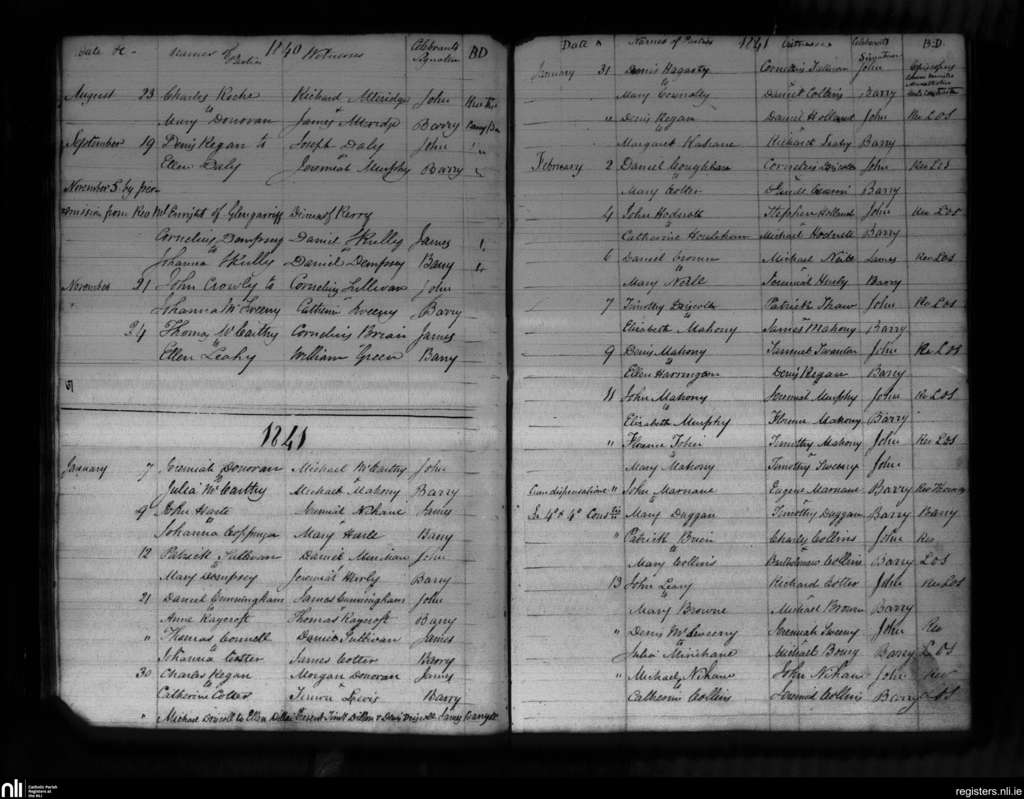 Date &c - Names of Parties 1840 Witnesses Celebrants Signature BD
August 23 Charles Roche Richard Alleridge John
to
Mary Donovan James Alleridge Barry
September 19 Denis Regan to Joseph Daly John "
Ellen Daly Jeremiah Murphy Barry "
November 5 by per
mission from Rev Mr Enright of Glengarriff Diocess of Kerry
Cornelius Dempsey Daniel Skully James
to
Johanna Skully Daniel Dempsey Barry
November 21 John Crowly to Cornelius Sullivan John
" Johanna McSweeny Catherine Sweeny Barry
24 Thomas McCarthy Cornelius Brian James
to
Ellen Leahy William Green Barry
1841
January 7 Jeremiah Donovan Michael McCarthy John
to
Julia McCarthy Michael Mahony Barry
9 John Harte Jeremiah Nihane James
to
Johanna Coppinger Mary Harte Barry
12 Patrick Sullivan Daniel John
to
Mary Dempsey Jeremiah Hurly Barry
21 Daniel Cunningham James Cunningham John
to
Anne Raycroft Thomas Raycroft Barry
" Thomas Connell Daniel Sullivan James
to
Johanna Cotter James Cotter Barry
30 Charles Regan Morgan Donovan James
to
Catherine Cotter Lewis Barry
" Michael Driscoll to Ellen Dillon Present Timy Dillon & Denis Driscoll James Barry
Date & Names of Parties 1841 Witnesses Celebrants Signature B.D.
January 31 Denis Hagarty Cornelius Sullivan John
to
Mary Connolly Daniel Collins Barry
" Denis Regan Daniel Holland John Rev L.O.S
to
Margaret Richard Leahy Barry
February 2 Daniel Coughlan Cornelius Driscoll John Rev L O S
to
Mary Cotter Barry
4 John Hodnett Stephen Holland John Rev L.O.S
to
Catherine Michael Hodnett Barry
6 Daniel Brown Michael James Rev L.O.S
to
Mary Noble Jeremiah Hurly Barry
7 Timothy Driscoll Patrick Shaw John Rev L.O.S
to
Elizabeth Mahony James Mahony Barry
9 Denis Mahony Samuel Swanton John Rev L O S
to
Ellen Harrington Denis Regan Barry
11 John Mahony Jeremiah Murphy John Rev L.O.S
to
Elizabeth Murphy Florence Mahony Barry
" Florence Tobin Timothy Mahony John Rev L.O.S
to
Mary Mahony Timothy Sweeny John
Cum dispensatione " John Marnane Eugene Marnane Barry Rev Thomas
to
In 4° & 4° Mary Duggan Timothy Duggan Barry Barry
" Patrick Brien Charly Collins John Rev
to
Mary Collins Bartholomew Collins Barry L O S
13 John Leary Richard Cotter John Rev L O S
to
Mary Browne Michael Brown Barry
" Denis McSweeny Jeremiah Sweeny John Rev
to
Julia Minihane Michael Bourg Barry L O S
" Michael Nihane John Nihane John Rev
to
Catherine Collins Jeremiah Collins Barry L O S
nli Catholic Parish
Registers at
the NLI
registers.nli.ie